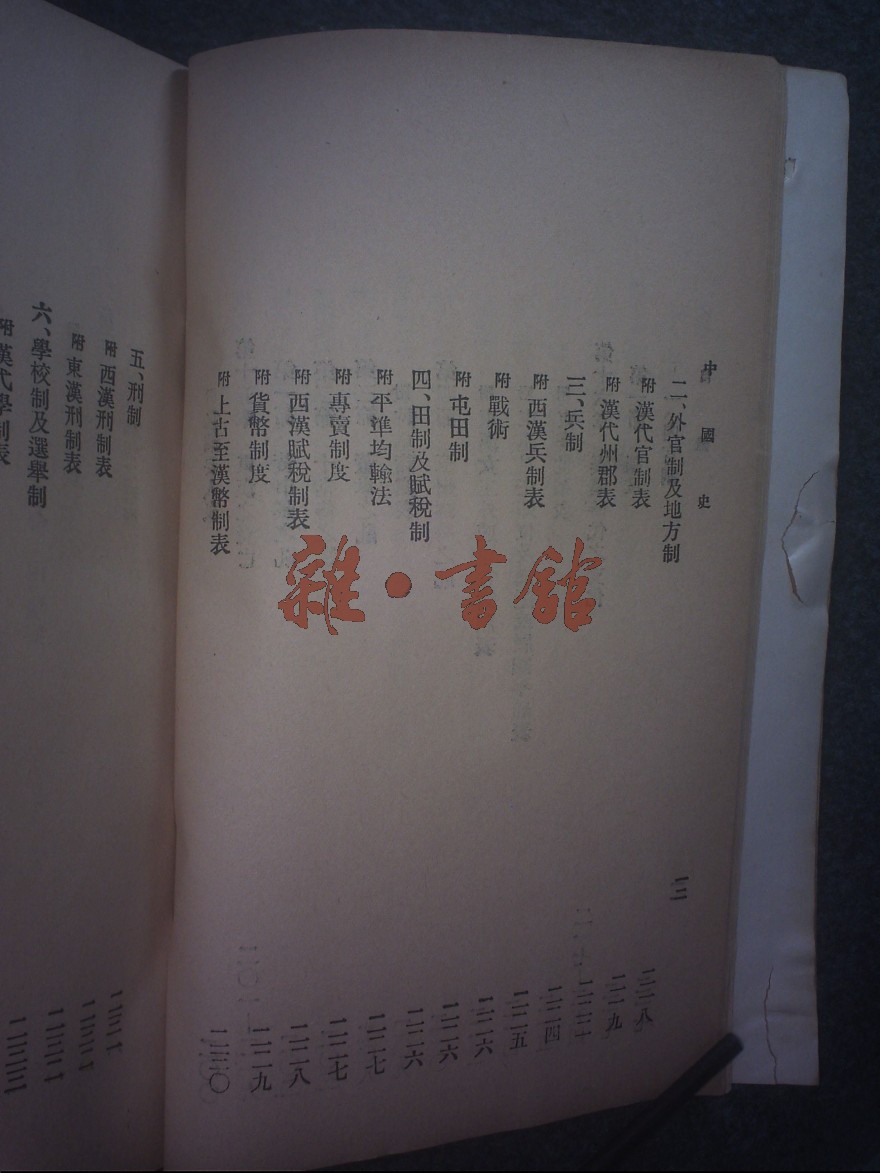 中國史
一二
二、外官制及地方制 二一八
附 漢代官制表 二一九
附 漢代州郡表 二二二
三、兵制 二二四
附 西漢兵制表 二二五
附 戰術 二二六
附 屯田制 二二六
四、田制及賦稅制 二二六
附 平準均輸法 二二七
附 專賣制度 二二七
附 西漢賦稅制表 二二八
附 貨幣制度 二二九
附 上古至漢幣制表 二三〇
五、刑制 二三一
附 西漢刑制表
附 東漢刑制表
六、學校制及選舉制
附 漢代學制表
雜·書館